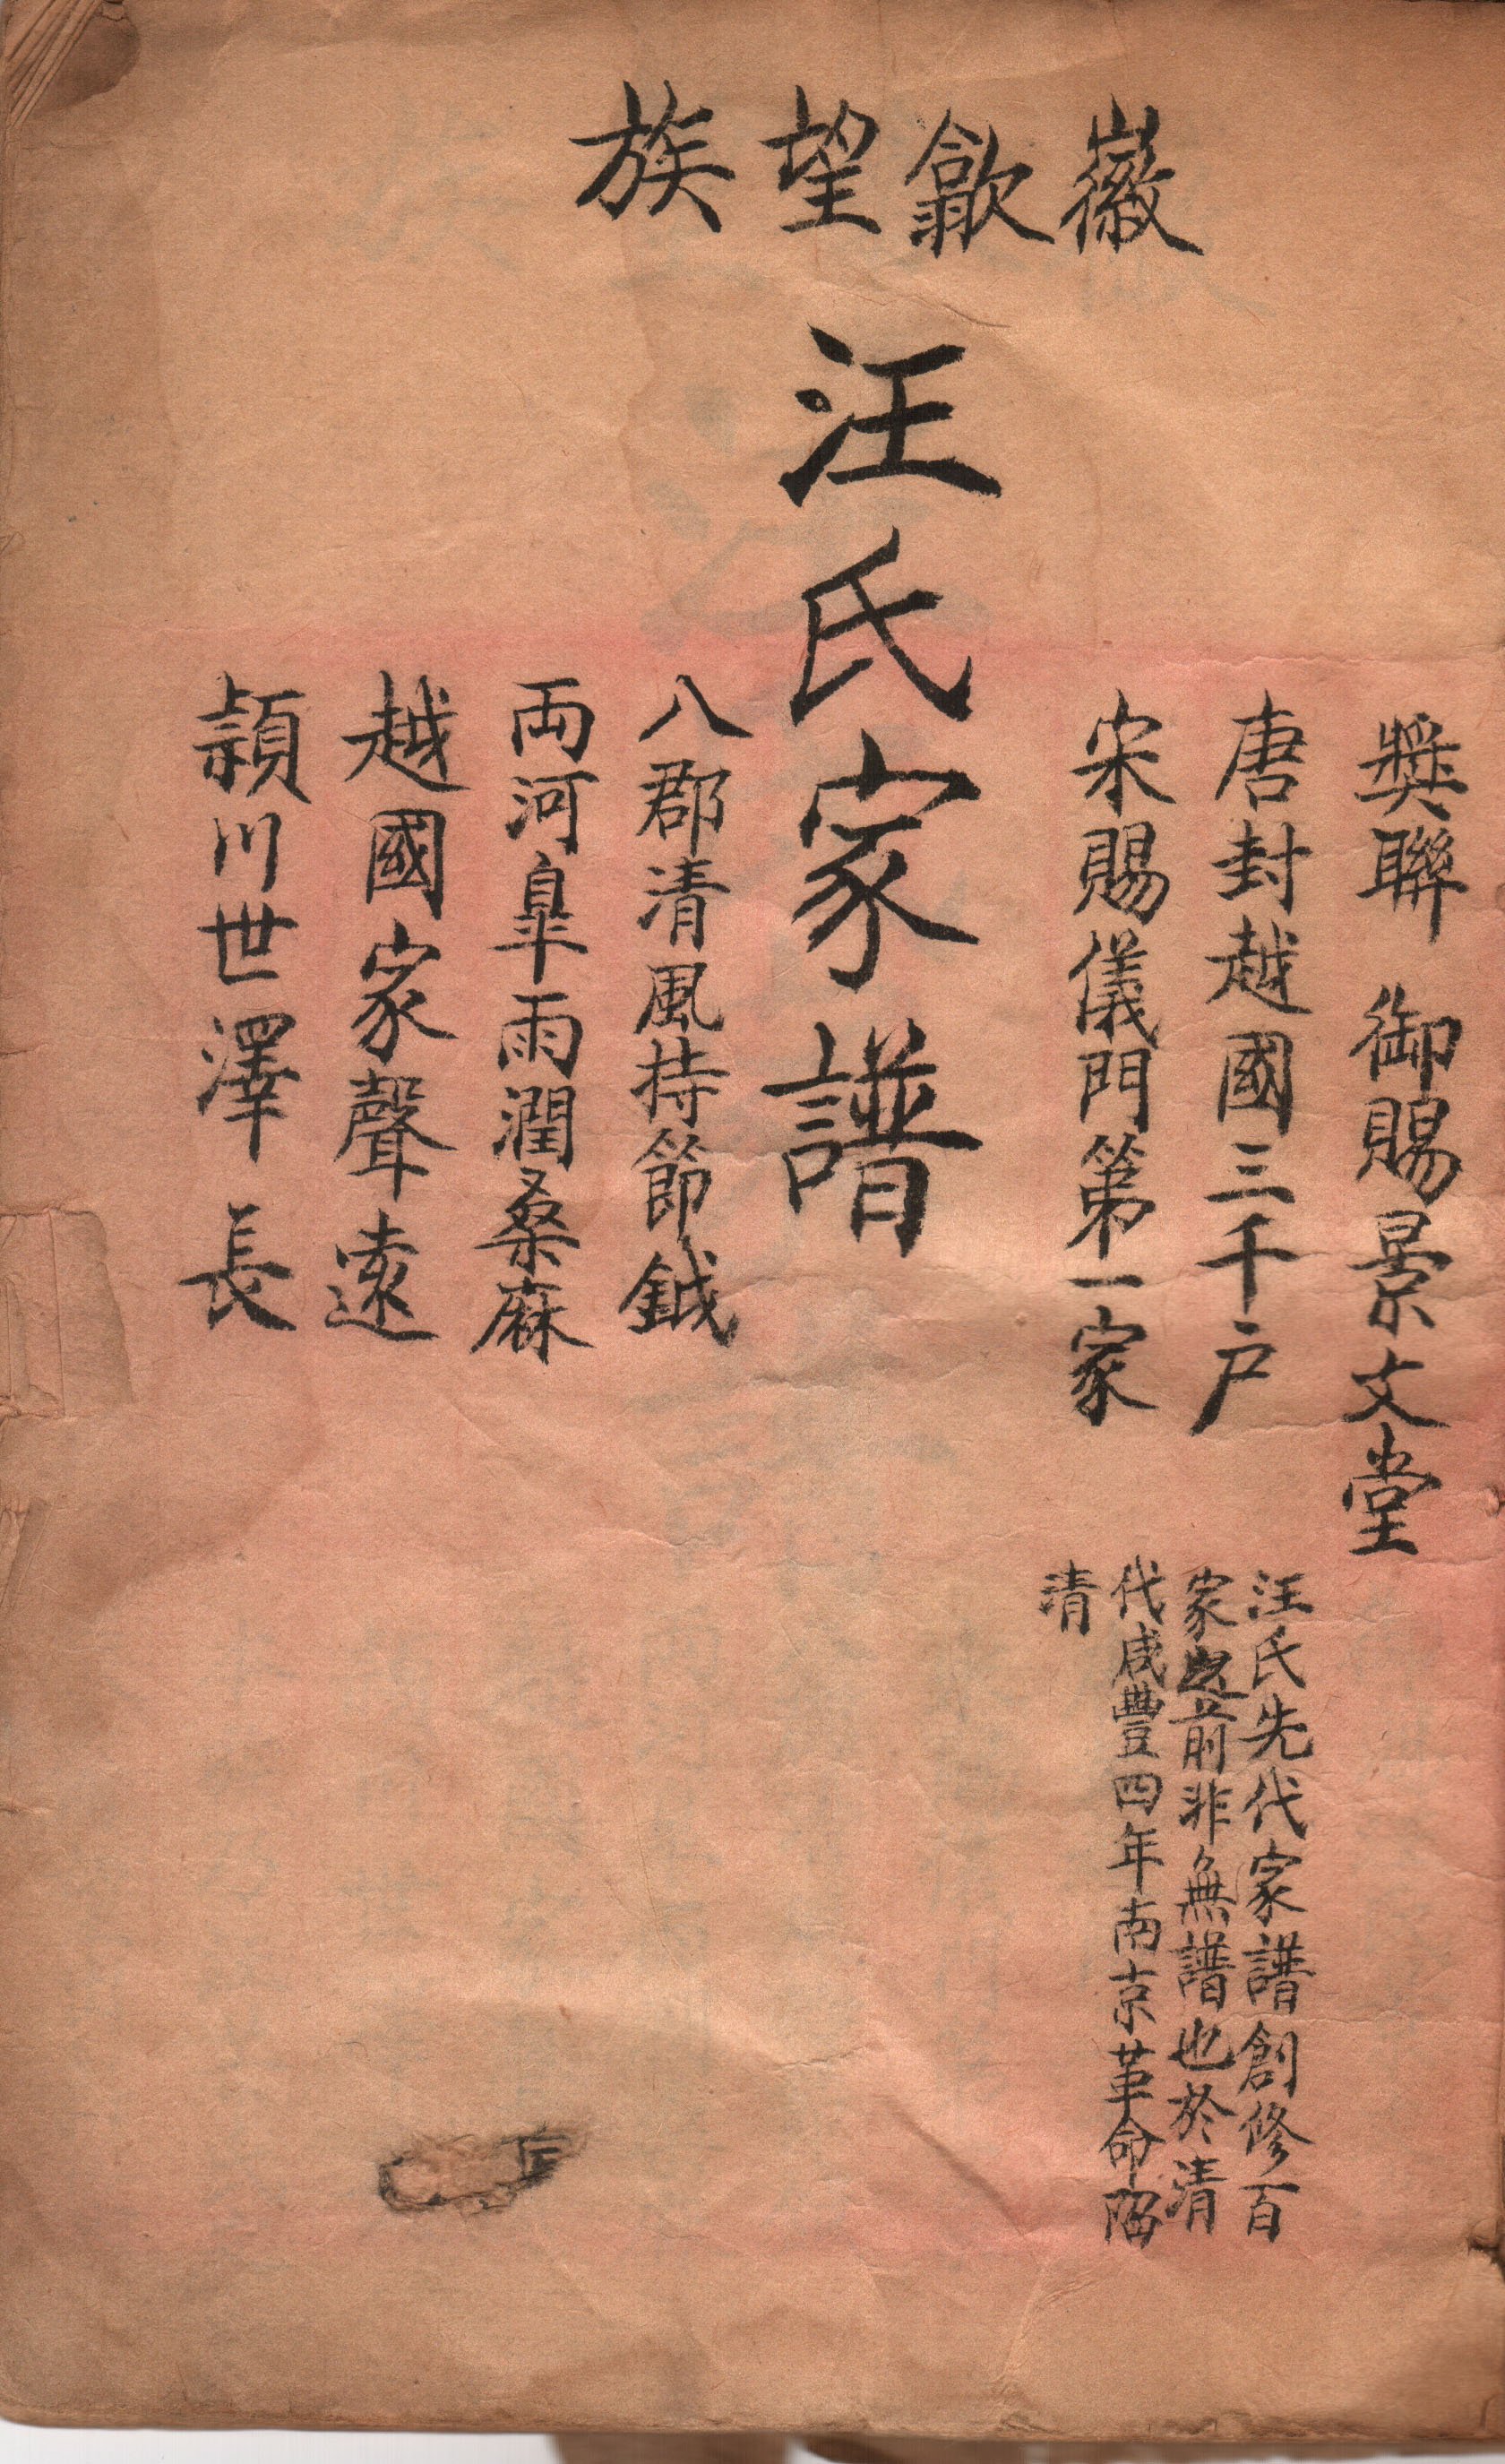 徽歙望族
獎聯 御賜景文堂
唐封越國三千户
宋賜儀門第一家
汪氏先代家譜創修百
家之前非無譜也於清
代咸豐四年南京革命陷
清
汪氏家譜
八郡清風持節鉞
両河皐雨潤桑麻
越國家聲遠
頴川世澤長